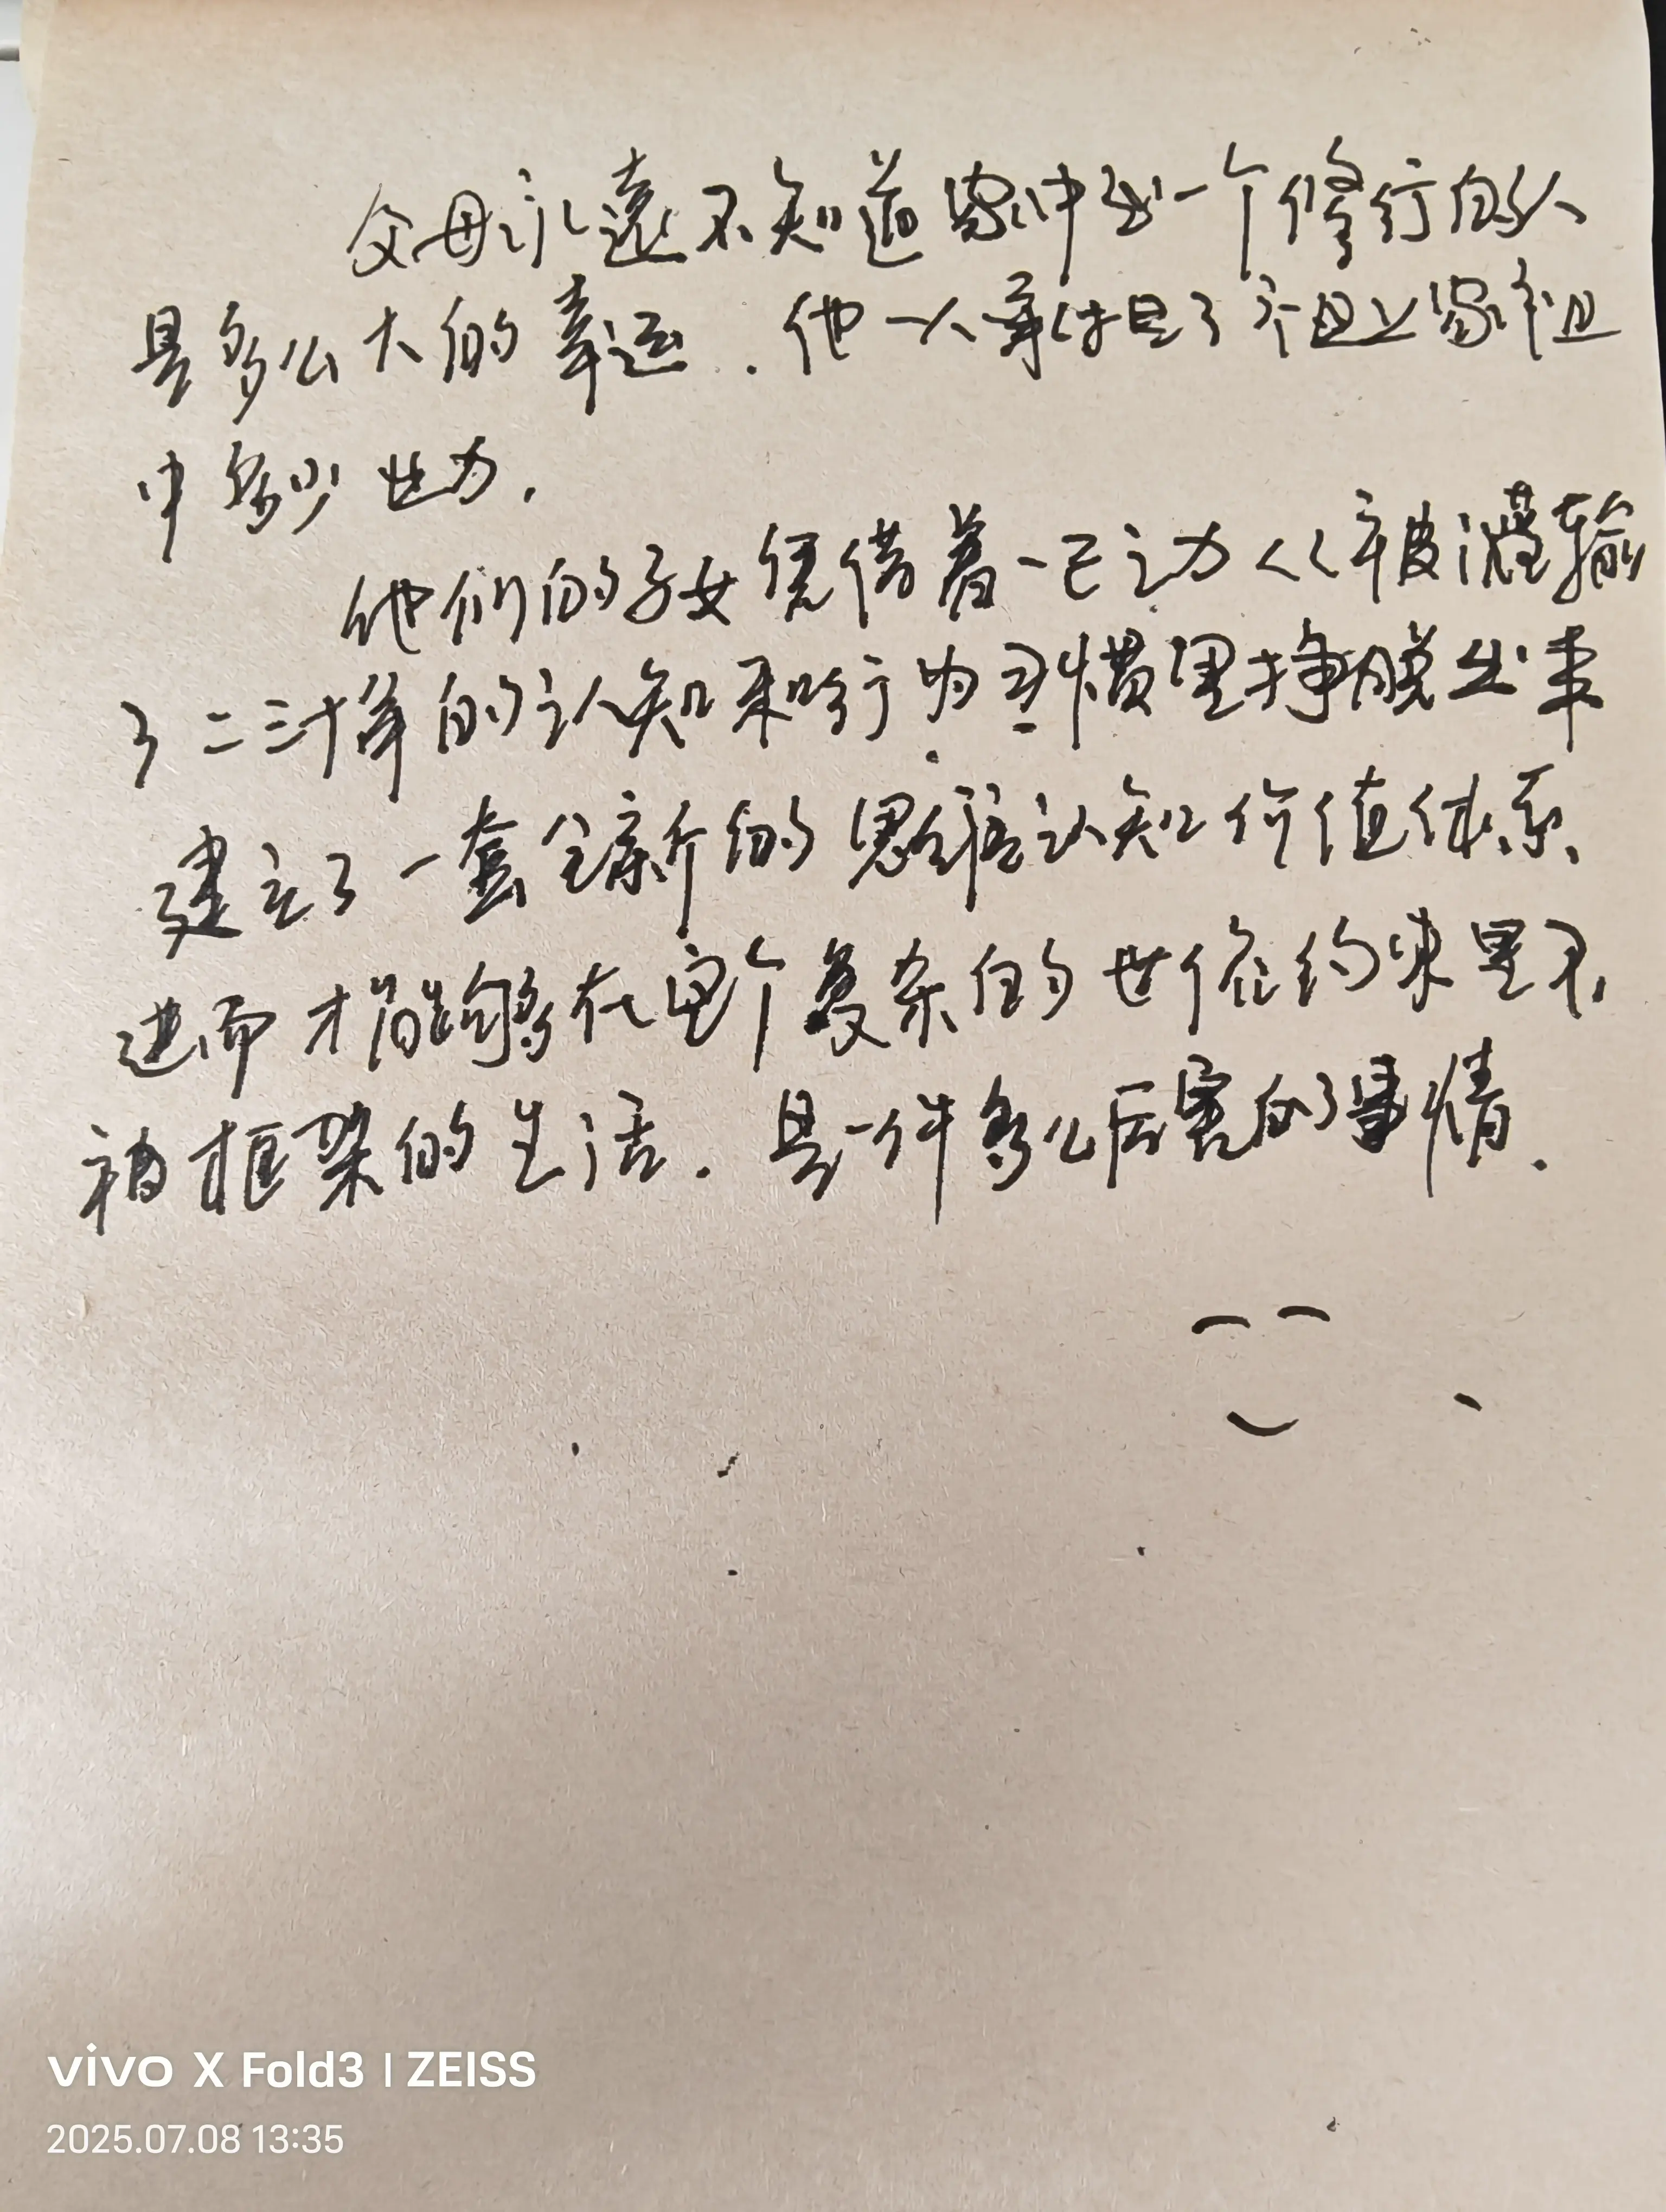 父母永遠不知道家中出一个修行的人
是多么大的幸运.他一人承担了祖上家
中多少业力.
他们的子女凭借着一己之力从被灌输
了二三十年的认知和行为习惯里挣脱出来
建立了一套全新的思维认知价值体系、
进而才能够在这个复杂的世俗约束里不
被框架的生活.是一件多么厉害的事情.
vivo X Fold3 | ZEISS
2025.07.08 13:35